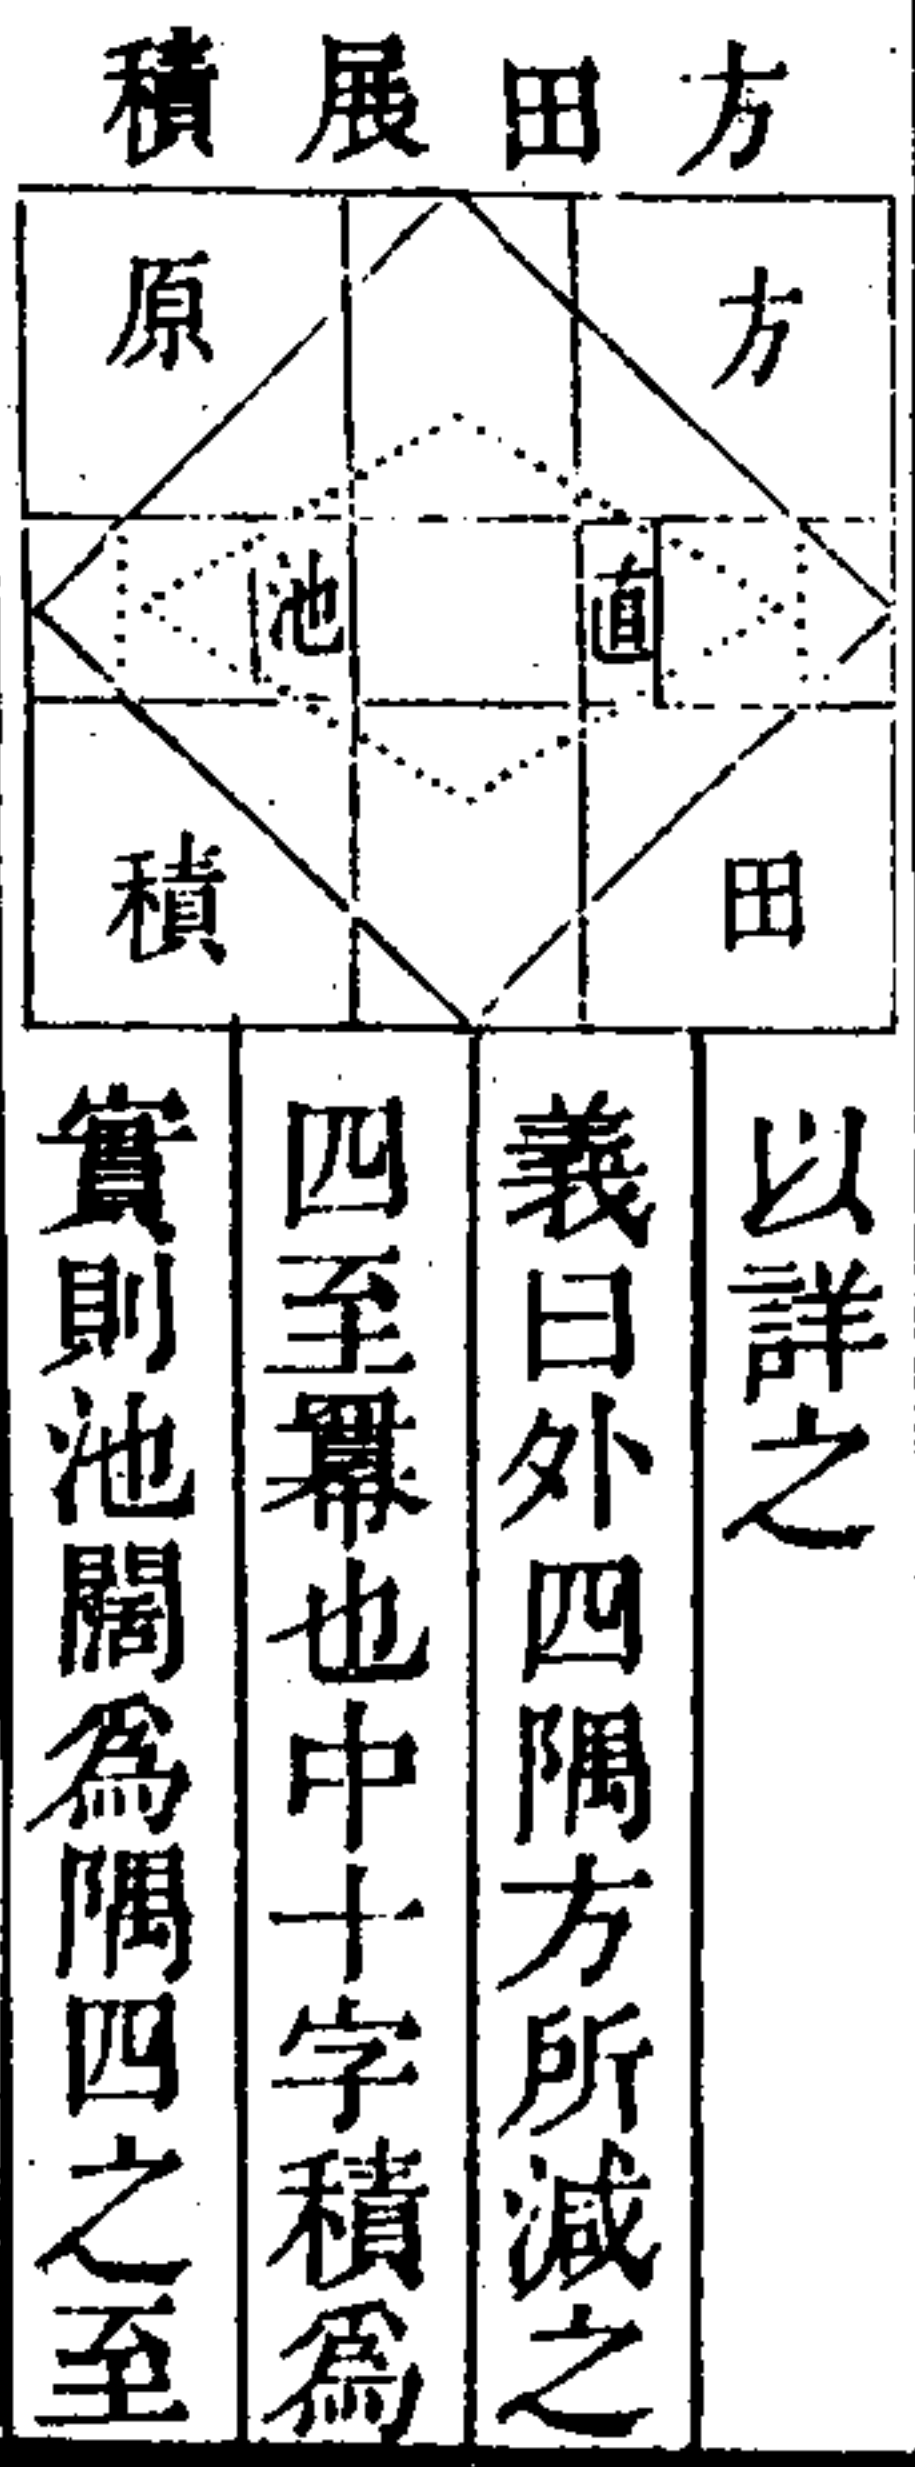 方田展積
方原
直池
田積
以詳之
義曰外四隅方所減之
四至冪也中十字積爲
實則池闊爲隅四之至